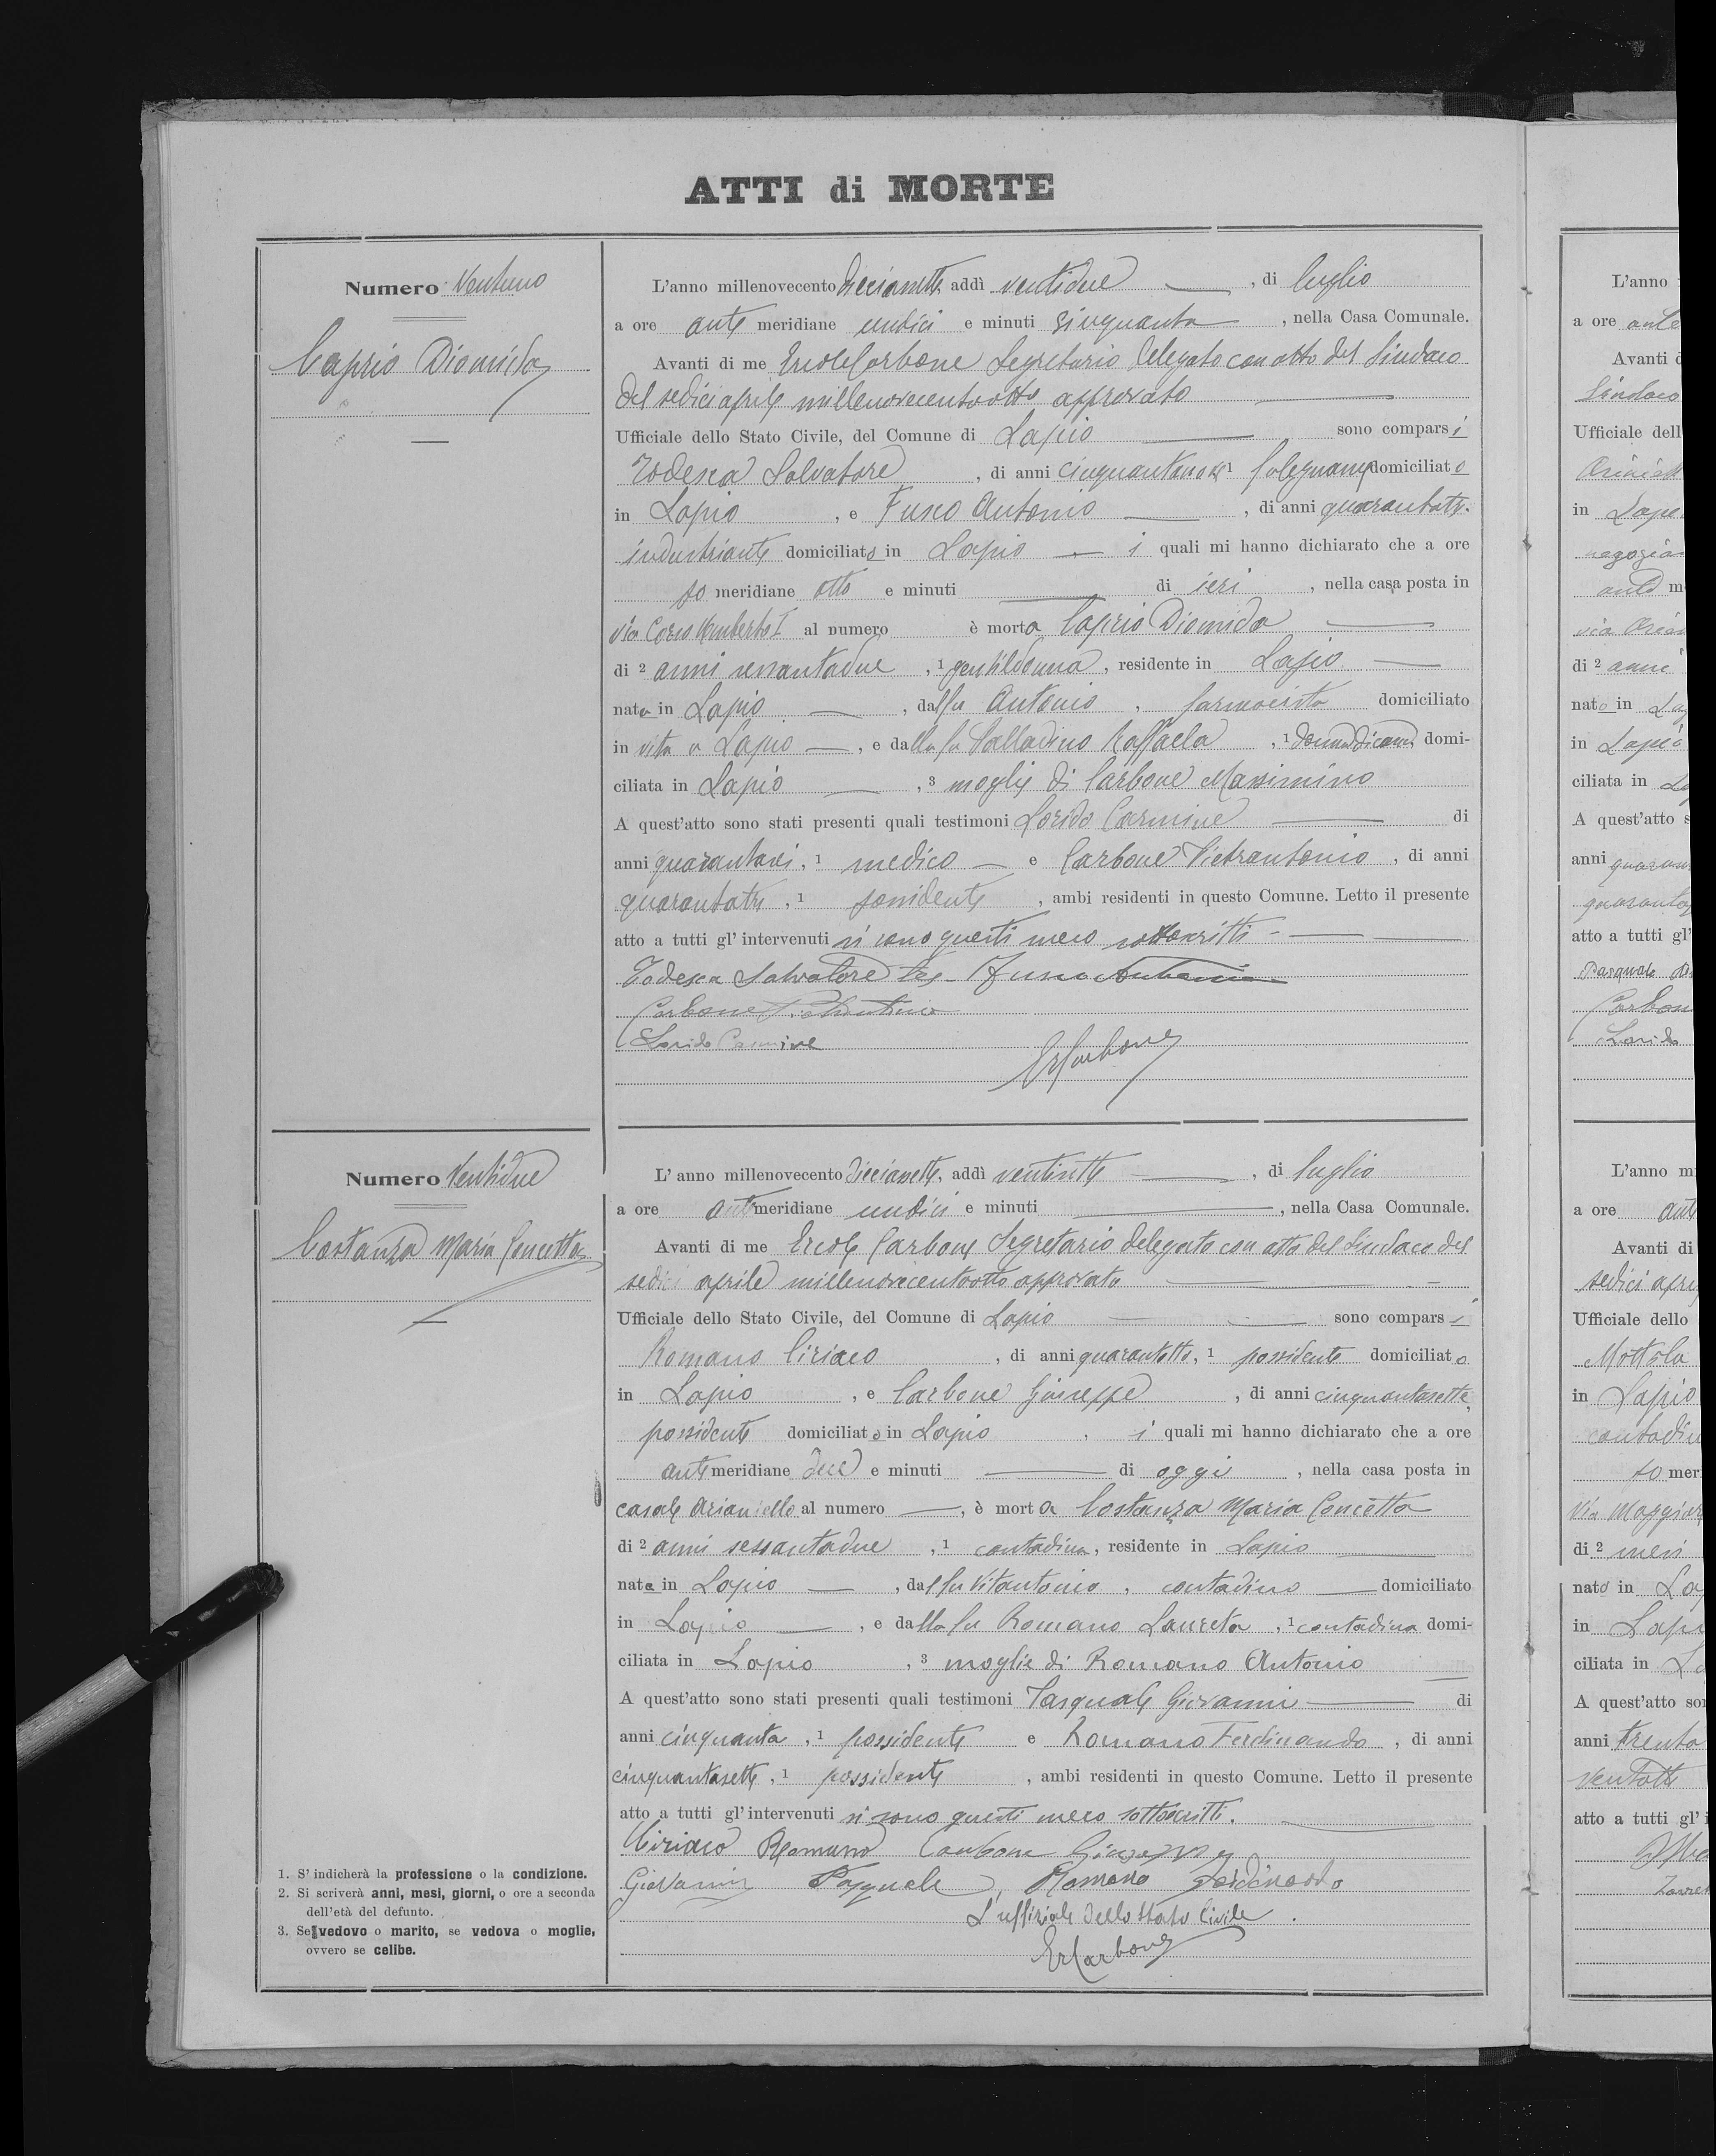 ATTI di MORTE
Numero Ventuno
Caprio Diomida
L'anno millenovecento diecisette, addì ventidue, di luglio
a ore ante meridiane undici e minuti cinquanta, nella Casa Comunale.
Avanti di me Ercole Carbone Segretario Delegato con atto del Sindaco
del sedici aprile millenovecentootto approvato
Ufficiale dello Stato Civile, del Comune di Lapio sono comparsi
Todesca Salvatore, di anni cinquantanove 1 falegname domiciliato
in Lapio, e Fusco Antonio, di anni quarantatre
industriante domiciliato in Lapio i quali mi hanno dichiarato che a ore
po meridiane otto e minuti di ieri, nella casa posta in
via Corso Umberto I al numero è morta Caprio Diomida
di 2 anni sessantadue, 1 gentildonna, residente in Lapio
nata in Lapio, dal fu Antonio, farmacista domiciliato
in vita a Lapio, e dalla fu Calladino Raffaela, 1 donna di casa domi-
ciliata in Lapio, 3 moglie di Carbone Massimino
A quest'atto sono stati presenti quali testimoni Lorido Carmine di
anni quarantasei, 1 medico e Carbone Pietrantonio, di anni
quarantatre, 1 possidente, ambi residenti in questo Comune. Letto il presente
atto a tutti gl'intervenuti si sono questi meco sottoscritti
Todesca Salvatore teg. Fusco Antonio
Carbone Pietrantonio
Lorido Carmine
ErCarbone
Numero Ventidue
Costanza Maria Concetta
L'anno millenovecento diecisette, addì ventisette, di luglio
a ore antimeridiane undici e minuti, nella Casa Comunale.
Avanti di me Ercole Carbone Segretario delegato con atto del Sindaco del
sedici aprile millenovecentootto approvato
Ufficiale dello Stato Civile, del Comune di Lapio sono comparsi
Romano Ciriaco, di anni quarantotto, 1 possidente domiciliato
in Lapio, e Carbone Giuseppe, di anni cinquantasette,
possidente domiciliato in Lapio, i quali mi hanno dichiarato che a ore
anti meridiane due e minuti di oggi, nella casa posta in
casale Arianiello al numero, è morta Costanza Maria Concetta
di 2 anni sessantadue, 1 contadina, residente in Lapio
nata in Lapio, dal fu Vitantonio, contadino domiciliato
in Lapio, e dalla fu Romano Laureta, 1 contadina domi-
ciliata in Lapio, 3 moglie di Romano Antonio
A quest'atto sono stati presenti quali testimoni Pasquale Giovanni di
anni cinquanta, 1 possidente e Romano Ferdinando, di anni
cinquantasette, 1 possidente, ambi residenti in questo Comune. Letto il presente
atto a tutti gl'intervenuti si sono questi meco sottoscritti.
Ciriaco Romano Carbone Giuseppe
Giovanni Pasquale, Romano Ferdinando
L'uffiziale dello Stato Civile.
ErCarbone
1. S'indicherà la professione o la condizione.
2. Si scriverà anni, mesi, giorni, o ore a seconda
dell'età del defunto.
3. Se vedovo o marito, se vedova o moglie,
ovvero se celibe.
L'anno
a ore ante
Avanti d
Sindaco
Ufficiale dell
in Lapio
di 2 anni
nato in
in Lapio
ciliata in
A quest'atto s
anni
atto a tutti gl'
Pasquale
Carbone
Lorido
L'anno m
a ore anti
Avanti di
sedici apri
Ufficiale dello
Mottola
in Lapio
contadin
po mer
via Maggior
di 2 mesi
nato in
in Lapi
ciliata in
A quest'atto so
anni trenta
ventotto
atto a tutti gl'i